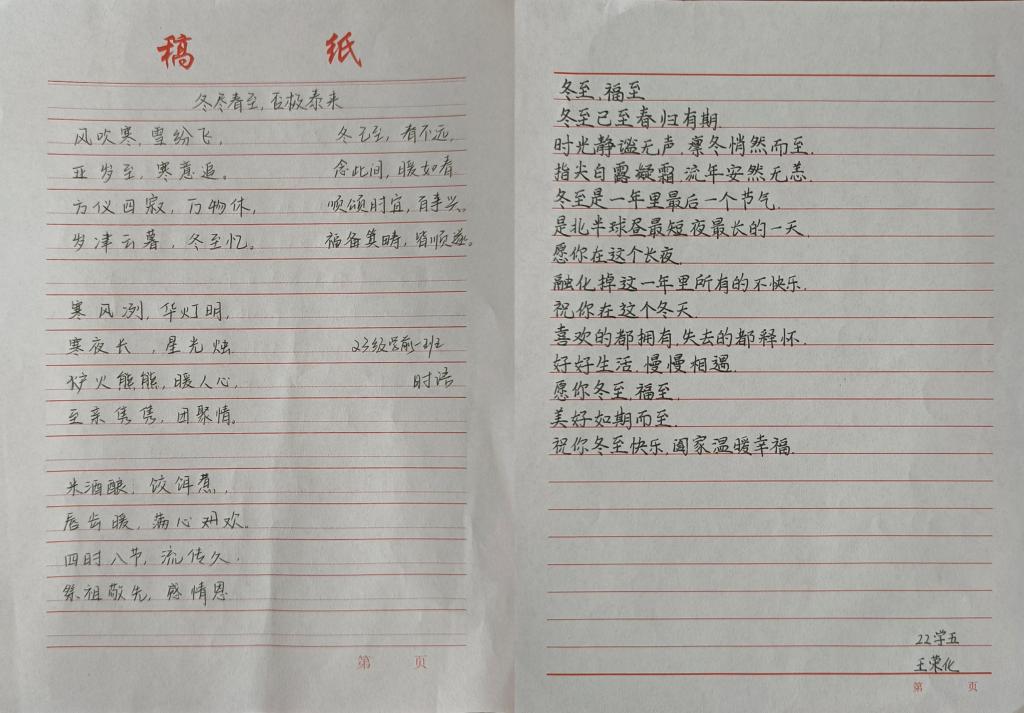 稿 纸
冬尽春至,否极泰来
风吹寒,雪纷飞,
亚岁至,寒意追。
方仪四寂,万物休,
岁津云暮,冬至忆。
寒风冽,华灯明,
寒夜长,星光烛
炉火熊熊,暖人心,
至亲隽隽,团聚情。
米酒酿,饺饵煮,
唇齿暖,满心欢。
四时八节,流传久.
祭祖敬先,感情恩
冬已至,春不远,
念此间,暖如春
顺颂时宜,百事兴。
福备箕畴,皆顺遂。
23级学前一班
时语
第 页
冬至,福至
冬至已至春归有期.
时光静谧无声,凛冬悄然而至.
指尖白露凝霜,流年安然无恙.
冬至是一年里最后一个节气.
是北半球昼最短夜最长的一天.
愿你在这个长夜.
融化掉这一年里所有的不快乐.
祝你在这个冬天.
喜欢的都拥有,失去的都释怀.
好好生活,慢慢相遇.
愿你冬至,福至.
美好如期而至.
祝你冬至快乐,阖家温暖幸福.
22学五
王荣化
第 页